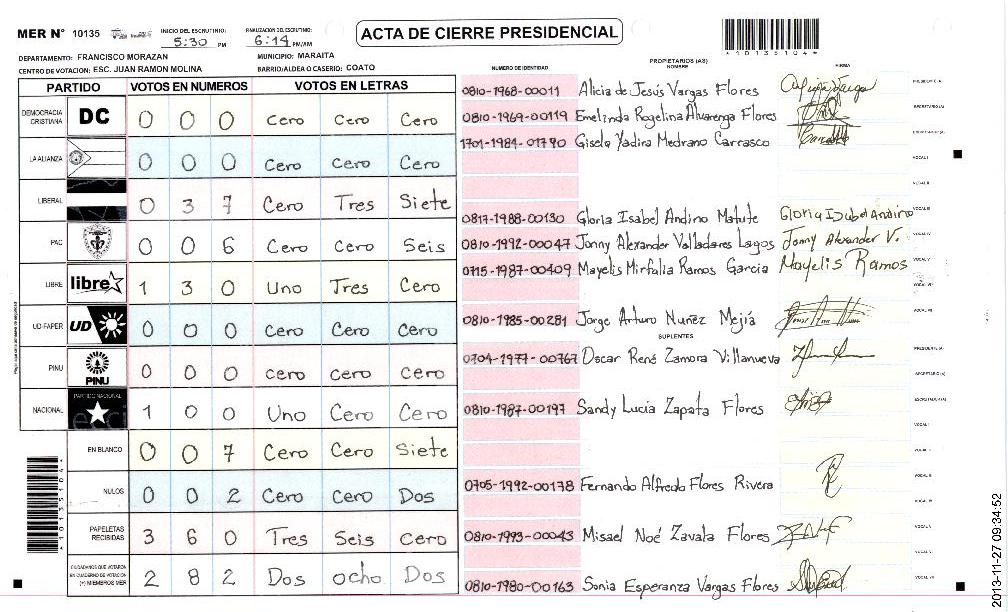 MER N° 10135
INICIO DEL ESCRUTINIO: 5:30 PM
FINALIZACION DEL ESCRUTINIO: 6:14 PM/AM
ACTA DE CIERRE PRESIDENCIAL
*10135104*
DEPARTAMENTO: FRANCISCO MORAZAN
MUNICIPIO: MARAITA
CENTRO DE VOTACION: ESC. JUAN RAMON MOLINA
BARRIO/ALDEA O CASERIO: COATO
PARTIDO VOTOS EN NUMEROS VOTOS EN LETRAS
DEMOCRACIA CRISTIANA DC 0 0 0 Cero Cero Cero
LA ALIANZA 0 0 0 Cero Cero Cero
LIBERAL 0 3 7 Cero Tres Siete
PAC 0 0 6 Cero Cero Seis
LIBRE libre 1 3 0 Uno Tres Cero
UD-FAPER UD 0 0 0 Cero Cero Cero
PINU PINU 0 0 0 cero cero Cero
NACIONAL PARTIDO NACIONAL 1 0 0 Uno Cero Cero
EN BLANCO 0 0 7 Cero Cero Siete
NULOS 0 0 2 Cero Cero Dos
PAPELETAS RECIBIDAS 3 6 0 Tres Seis Cero
CIUDADANOS QUE VOTARON EN CUADERNO DE VOTACION (+) MIEMBROS MER 2 8 2 Dos ocho Dos
*10135104*
NUMERO DE IDENTIDAD PROPIETARIOS (AS) NOMBRE FIRMA
0810-1968-00011 Alicia de Jesús Vargas Flores PRESIDENTE (A)
0810-1969-00119 Emelinda Rogelina Alvarenga Flores SECRETARIO (A)
1701-1984-01790 Gisela Yadira Medrano Carrasco
VOCAL I
VOCAL II
0817-1988-00130 Gloria Isabel Andino Matute Gloria Isabel Andino VOCAL III
0810-1992-00047 Jonny Alexander Valladares Lagos Jonny Alexander V. VOCAL IV
0715-1987-00409 Mayelis Mirfalia Ramos Garcia Mayelis Ramos VOCAL V
VOCAL VI
0810-1985-00281 Jorge Arturo Nuñez Mejía VOCAL VII
SUPLENTES
0704-1977-00767 Oscar René Zamora Villanueva PRESIDENTE (A)
SECRETARIO (A)
0810-1987-00197 Sandy Lucia Zapata Flores ESCRUTADOR (A)
VOCAL I
0705-1992-00178 Fernando Alfredo Flores Rivera VOCAL III
0810-1993-00043 Misael Noé Zavala Flores VOCAL V
0810-1980-00163 Sonia Esperanza Vargas Flores VOCAL VII
2013-11-27 09:34:52